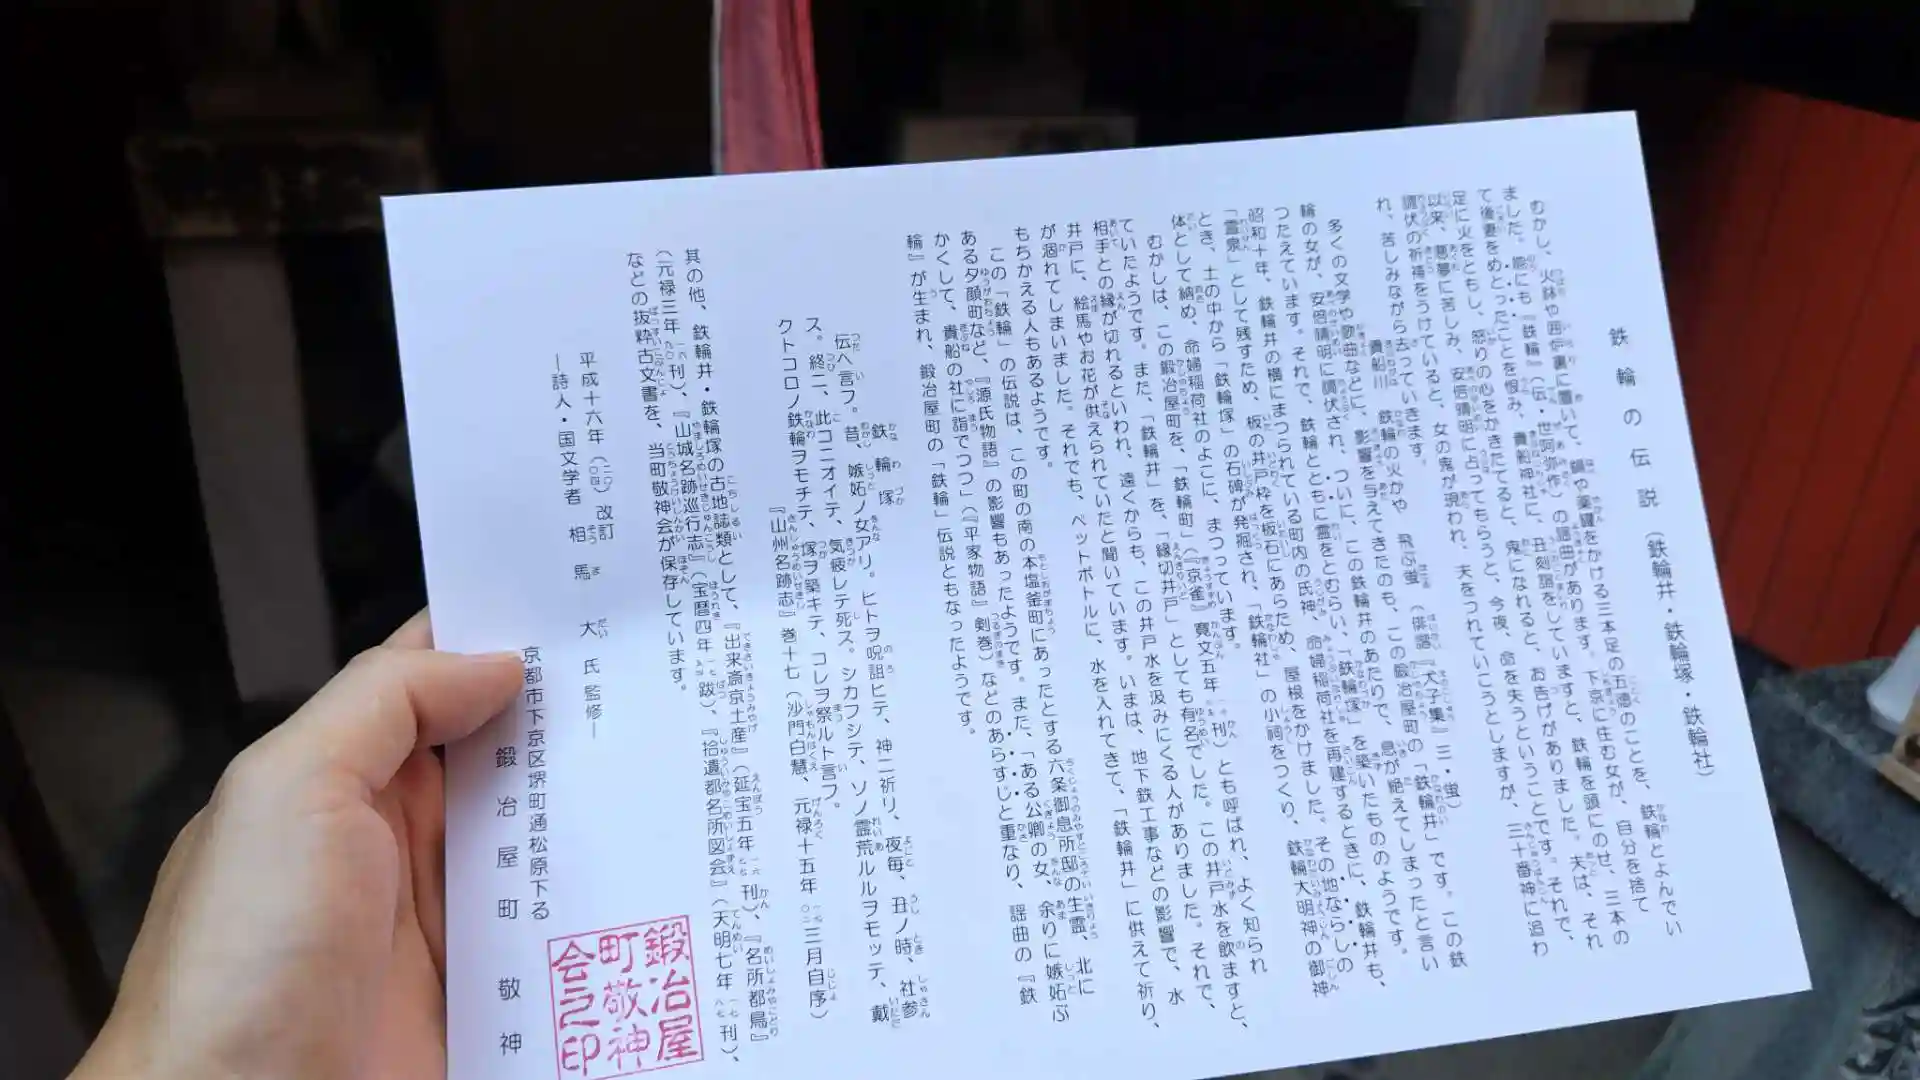 鉄輪の伝説（鉄輪井・鉄輪塚・鉄輪社）
むかし、火鉢や囲炉裏に置いて、鍋や薬罐をかける三本足の五徳のことを、鉄輪とよんでい
ました。能にも『鉄輪』（伝・世阿弥作）の謡曲があります。下京に住む女が、自分を捨て
て後妻をめとったことを恨み、貴船神社に、丑刻詣をしていますと、鉄輪を頭にのせ、三本の
足に火をともし、怒りの心をかきたてると、鬼になれると、お告げがありました。夫は、それ
以来、悪夢に苦しみ、安倍晴明に占ってもらうと、今夜、命を失うということです。それで、
調伏の祈禱をうけていると、女の鬼が現われ、夫をつれていこうとしますが、三十番神に追わ
れ、苦しみながら去っていきます。
貴船川 鉄輪の火かや 飛ぶ蛍 （俳諧『犬子集』三・蛍）
多くの文学や歌曲などに、影響を与えてきたのも、この鍛冶屋町の「鉄輪井」です。この鉄
輪の女が、安倍晴明に調伏され、ついに、この鉄輪井のあたりで、息が絶えてしまったと言い
つたえています。それで、鉄輪とともに霊をとむらい、「鉄輪塚」を築いたもののようです。
昭和十年、鉄輪井の横にまつられている町内の氏神、命婦稲荷社を再建するときに、鉄輪井も、
「霊泉」として残すため、板の井戸枠を板石にあらため、屋根をかけました。その地ならしの
とき、土の中から「鉄輪塚」の石碑が発掘され、「鉄輪社」の小祠をつくり、鉄輪大明神の御神
体として納め、命婦稲荷社のよこに、まつっています。
むかしは、この鍛冶屋町を、「鉄輪町」（『京雀』寛文五年 刊）とも呼ばれ、よく知られ
ていたようです。また、「鉄輪井」を、「縁切井戸」としても有名でした。この井戸水を飲ますと、
相手との縁が切れるといわれ、遠くからも、この井戸水を汲みにくる人がありました。それで、
井戸に、絵馬やお花が供えられていたと聞いています。いまは、地下鉄工事などの影響で、水
が涸れてしまいました。それでも、ペットボトルに、水を入れてきて、「鉄輪井」に供えて祈り、
もちかえる人もあるようです。
この「鉄輪」の伝説は、この町の南の本塩釜町にあったとする六条御息所邸の生霊、北に
ある夕顔町など、『源氏物語』の影響もあったようです。また、「ある公卿の女、余りに嫉妬ぶ
かくして、貴船の社に詣でつつ」（『平家物語』剣巻）などのあらすじと重なり、謡曲の『鉄
輪』が生まれ、鍛冶屋町の「鉄輪」伝説ともなったようです。
鉄輪塚
伝ヘ言フ。昔、嫉妬ノ女アリ。ヒトヲ呪詛ヒテ、神ニ祈リ、夜毎、丑ノ時、社参
ス。終ニ、此コニオイテ、気疲レテ死ス。シカフシテ、ソノ霊荒ルルヲモッテ、戴
クトコロノ鉄輪ヲモチテ、塚ヲ築キテ、コレヲ祭ルト言フ。
『山州名跡志』巻十七（沙門白慧、元禄十五年 一七〇二 三月自序）
其の他、鉄輪井・鉄輪塚の古地誌類として、『出来斎京土産』（延宝五年 一六七七 刊）、『名所都鳥』
（元禄三年 一六九〇 刊）、『山城名跡巡行志』（宝暦四年 一七五四 跋）、『拾遺都名所図会』（天明七年 一七八七 刊）、
などの抜粋古文書を、当町敬神会が保存しています。
平成十六年（二〇〇四）改訂
―詩人・国文学者 相馬 大 氏監修―
京都市下京区堺町通松原下る
鍛冶屋町敬神
鍛冶屋
町敬神
会之印